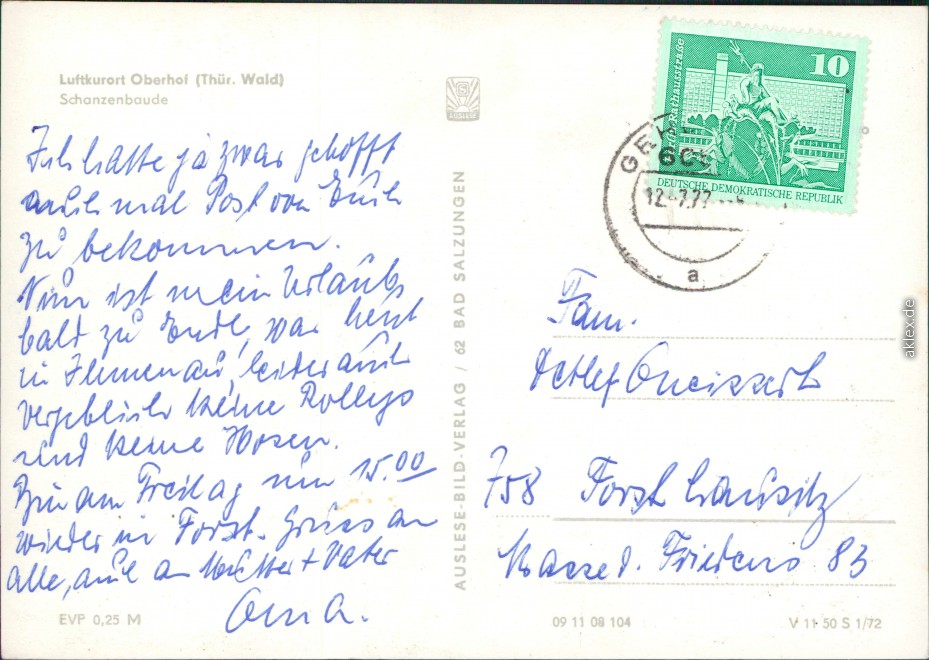 Luftkurort Oberhof (Thür. Wald)
Schanzenbaude
Ich hatte ja zwar gehofft
auch mal Post von Euch
zu bekommen.
Nun ist mein Urlaub
bald zu Ende, war heut
in Ilmenau, leider auch
vergeblich keine Rollys
und keine Hosen.
Bin am Freitag um 15.00
wieder in Forst. Gruss an
alle, auch an Mutter + Vater
Oma.
EVP 0,25 M
AUSLESE-BILD-VERLAG / 62 BAD SALZUNGEN
10
Rathausstraße
DEUTSCHE DEMOKRATISCHE REPUBLIK
12.-7.77
a
Fam.
Detlef
758 Forst Lausitz
d. Friedens 83
09 11 08 104
V 11 50 S 1/72
aklex.de